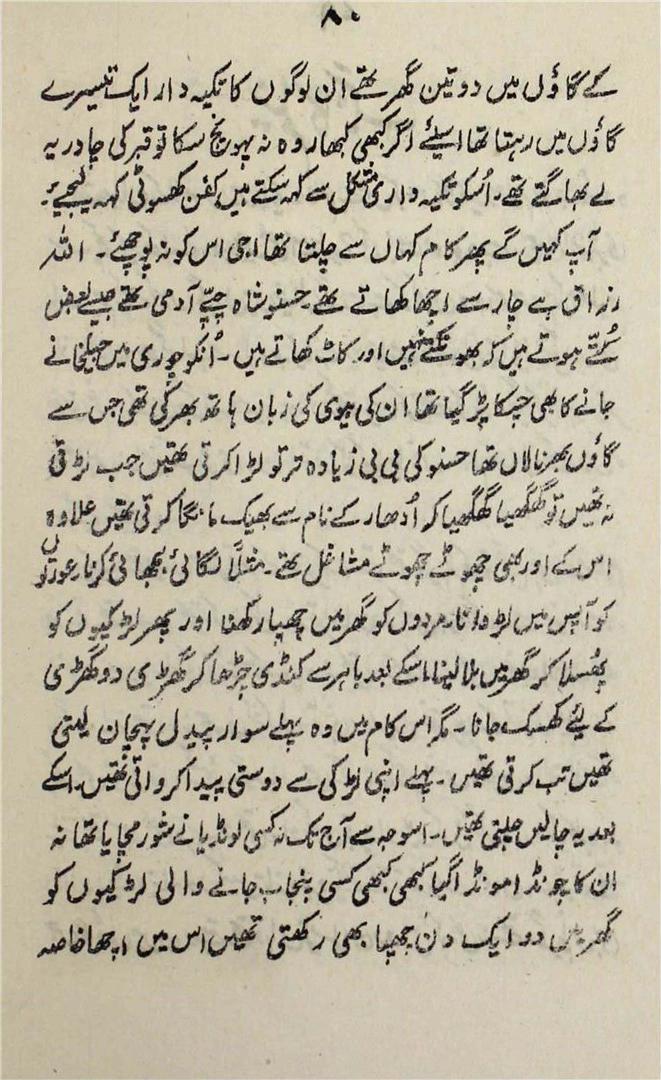 ۸۰
کے گاؤں میں دو تین گھر تھے ان لوگوں کا تکیہ دار ایک تیسرے
گاؤں میں رہتا تھا اسلئے اگر کبھی کبھار وہ نہ پہونچ سکا تو قبر کی چادر یہ
لے بھاگتے تھے۔ اُسکو تکیہ داری مشکل سے کہہ سکتے ہیں کفن کھسوٹی کہہ لیجئے۔
آپ کہیں گے پھر کام کہاں سے چلتا تھا اجی اس کو نہ پوچھئے۔ اللہ
رزاق ہے چار سے اچھا کھاتے تھے۔ حسنو شاہ چپّے آدمی تھے جیسے بعض
کُتّے ہوتے ہیں کہ بھونکتے نہیں اور کاٹ کھاتے ہیں۔ اُنکو چوری میں جیلخانے
جانے کا بھی چسکا پڑ گیا تھا ان کی بیوی کی زبان ہاتھ بھر کی تھی جس سے
گاؤں بھر نالاں تھا حسنو کی بی بی زیادہ تر تو لڑا کرتی تھیں جب لڑتی
نہ تھیں تو گھگھیا گھگھیا کر اُدھار کے نام سے بھیک مانگا کرتی تھیں علاوہ
اس کے اور بھی چھوٹے چھوٹے مشاغل تھے۔ مثلاً لگائی بجھائی کرنا۔ عورتوں
کو آپس میں لڑوانا۔ مردوں کو گھر میں چھپا رکھنا اور پھر لڑکیوں کو
پھُسلا کر گھر میں بلا لینا۔ اسکے بعد باہر سے کنڈی چڑھا کر گھڑی دو گھڑی
کے لئے کھسک جانا۔ مگر اس کام میں وہ پہلے سوار پیدل پہچان لیتی
تھیں تب کرتی تھیں۔ پہلے اپنی لڑکی سے دوستی پیدا کرواتی تھیں۔ اسکے
بعد یہ چالیں چلتی تھیں۔ اسوجہ سے آج تک نہ کسی لونڈیا نے شور مچایا تھا نہ
ان کا چونڈا مونڈا گیا کبھی کبھی کسی پنجاب جانے والی لڑکیوں کو
گھر میں دو ایک دن چھپا بھی رکھتی تھیں اس میں اچھا خاصہ